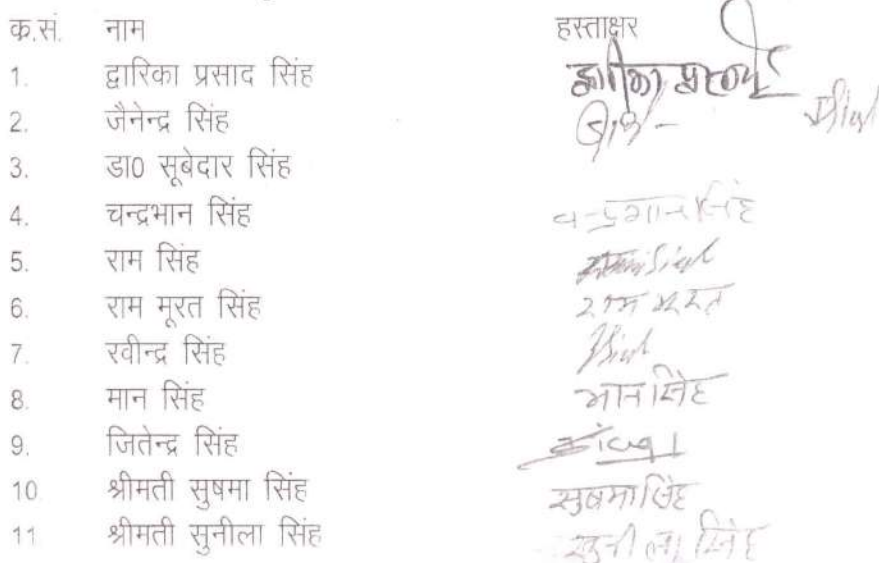 क.सं. नाम हस्ताक्षर
1. द्वारिका प्रसाद सिंह द्वारिका प्रसाद
2. जैनेन्द्र सिंह
3. डा0 सूबेदार सिंह
4. चन्द्रभान सिंह चन्द्रभान सिंह
5. राम सिंह
6. राम मूरत सिंह राम मूरत
7. रवीन्द्र सिंह
8. मान सिंह मान सिंह
9. जितेन्द्र सिंह
10. श्रीमती सुषमा सिंह सुषमा सिंह
11 श्रीमती सुनीला सिंह सुनीला सिंह